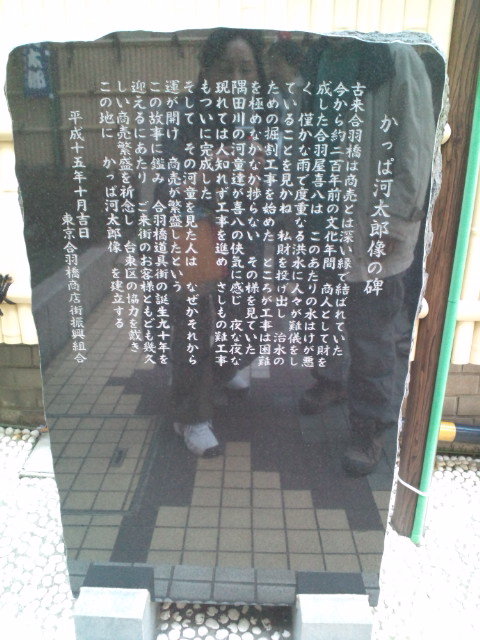 かっぱ河太郎像の碑
古来合羽橋は商売とは深い縁で結ばれていた
今から約二百年前の文化年間 商人として財を
成した合羽屋喜八は このあたりの水はけが悪
く 僅かな雨で度重なる洪水に人々が難儀をし
ていることを見かね 私財を投げ出し 治水の
ための掘割工事を始めた ところが工事は困難
を極めなかなか捗らない その様を見ていた
隅田川の河童達が喜八の侠気に感じ 夜な夜な
現れては人知れず工事を進め さしもの難工事
もついに完成した
そして その河童を見た人は なぜかそれから
運が開け 商売が繁盛したという
この故事に鑑み 合羽橋道具街の誕生九十年を
迎えるにあたり ご来街のお客様ともども幾久
しい商売繁盛を祈念し 台東区の協力を戴き
この地に かっぱ河太郎像 を建立する
平成十五年十月吉日
東京合羽橋商店街振興組合